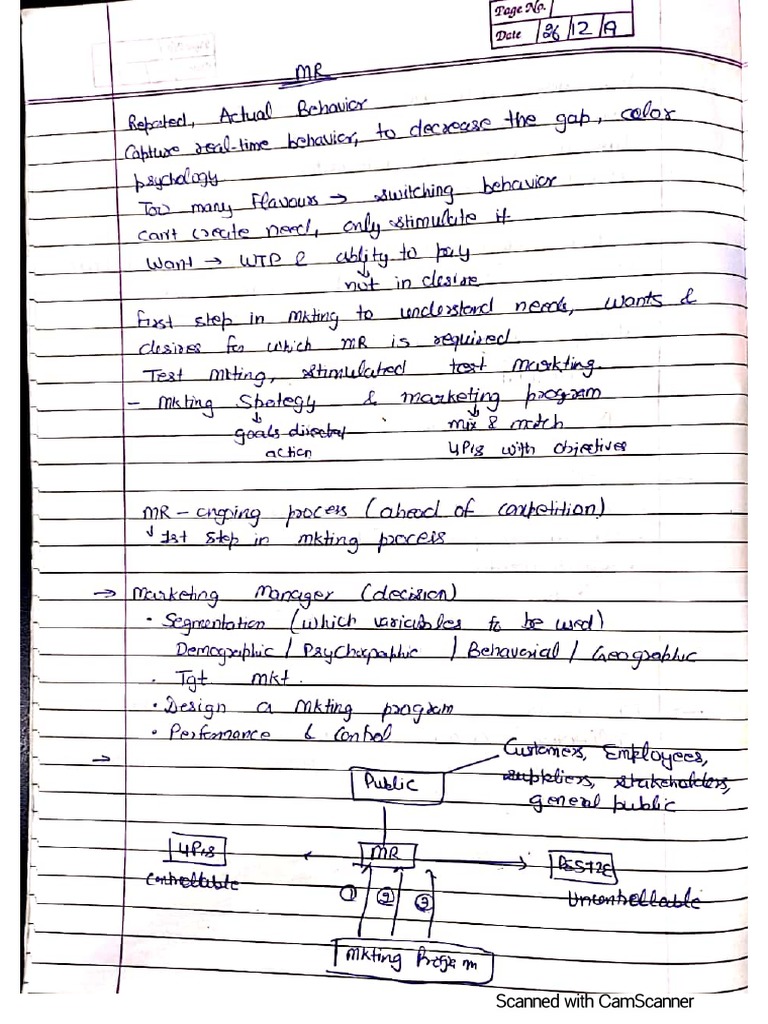 Page No.
Date 26/12/19
MR
Repoated, Actual Behavior
Capture real-time behavior, to decrease the gap, color
psychology
Too many flavours → switching behavior
can't create need, only stimulate it
Want → WTP & ability to pay
not in desire
First step in mkting to understand needs, wants &
desires for which MR is required
Test mkting, stimulated test markting.
- Mkting Strategy & marketing program
goals directed mix & match
action 4P's with objectives
MR - ongoing process (ahead of competition)
↳ 1st step in mkting process
→ Marketing Manager (decision)
• Segmentation (which variables to be used)
Demographic / Psychographic / Behaverial / Geographic
• Tgt mkt.
• Design a mkting program
• Performance & Control
→ Customers, Employees,
Public suppliers, stakeholders,
general public
4P's MR PESTLE
Controllable Uncontrollable
① ② ③
Mkting Program
Scanned with CamScanner